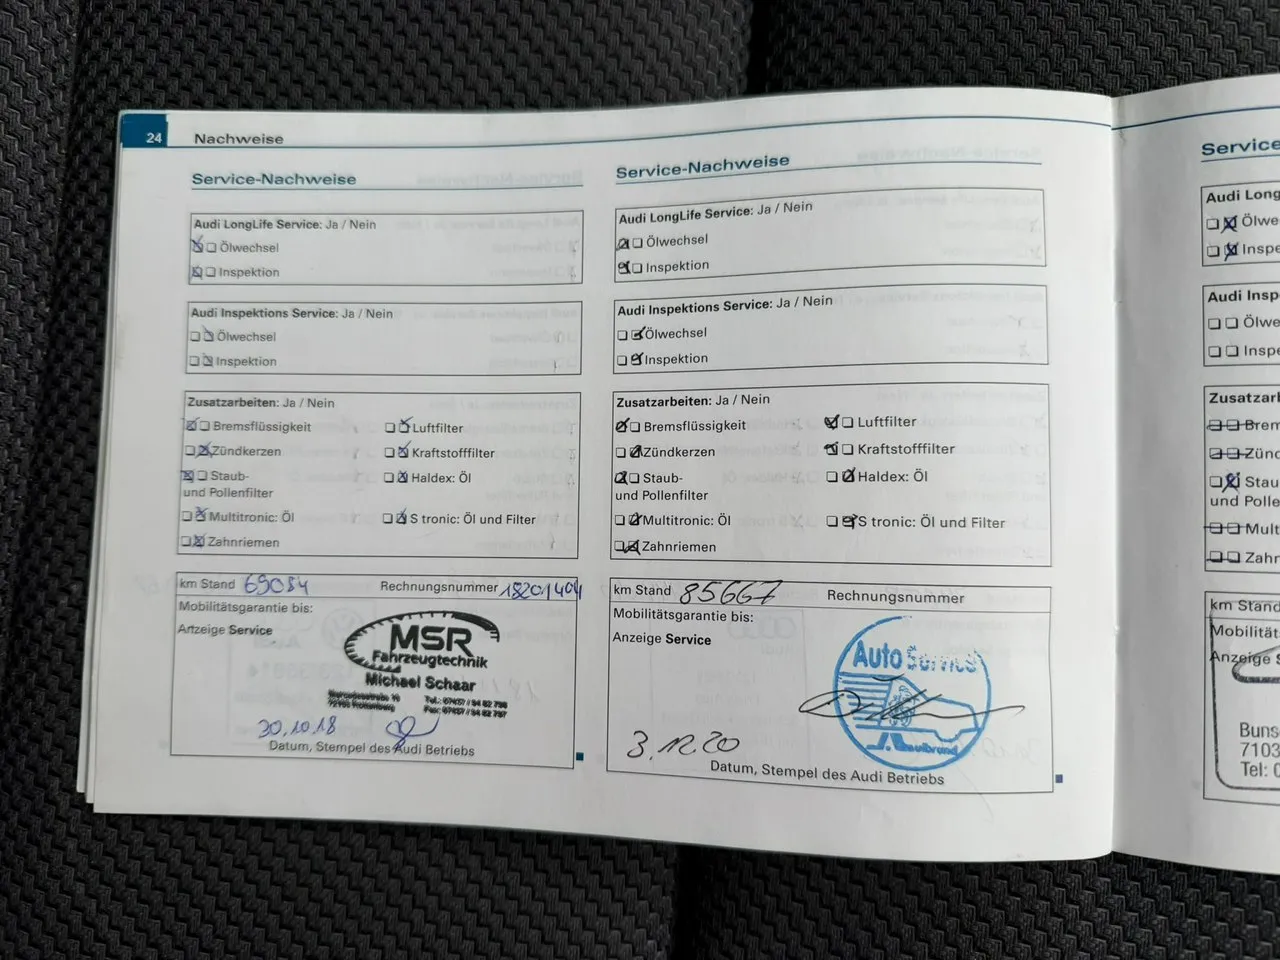 24 Nachweise
Service-Nachweise
Audi LongLife Service: Ja / Nein
Ölwechsel
Inspektion
Audi Inspektions Service: Ja / Nein
Ölwechsel
Inspektion
Zusatzarbeiten: Ja / Nein
Bremsflüssigkeit Luftfilter
Zündkerzen Kraftstofffilter
Staub- Haldex: Öl
und Pollenfilter
Multitronic: Öl S tronic: Öl und Filter
Zahnriemen
km Stand 69084 Rechnungsnummer 18201404
Mobilitätsgarantie bis:
Anzeige Service
MSR
Fahrzeugtechnik
Michael Schaar
30.10.18
Datum, Stempel des Audi Betriebs
Service-Nachweise
Audi LongLife Service: Ja / Nein
Ölwechsel
Inspektion
Audi Inspektions Service: Ja / Nein
Ölwechsel
Inspektion
Zusatzarbeiten: Ja / Nein
Bremsflüssigkeit Luftfilter
Zündkerzen Kraftstofffilter
Staub- Haldex: Öl
und Pollenfilter
Multitronic: Öl S tronic: Öl und Filter
Zahnriemen
km Stand 85667 Rechnungsnummer
Mobilitätsgarantie bis:
Anzeige Service
Auto Service
3.12.20
Datum, Stempel des Audi Betriebs
Service
Audi Long
Ölwe
Inspe
Audi Insp
Ölwe
Inspe
Zusatzar
Brem
Zünd
Stau
und Polle
Mult
Zahn
km Stand
Mobilität
Anzeige S
Buns
7103
Tel: 0